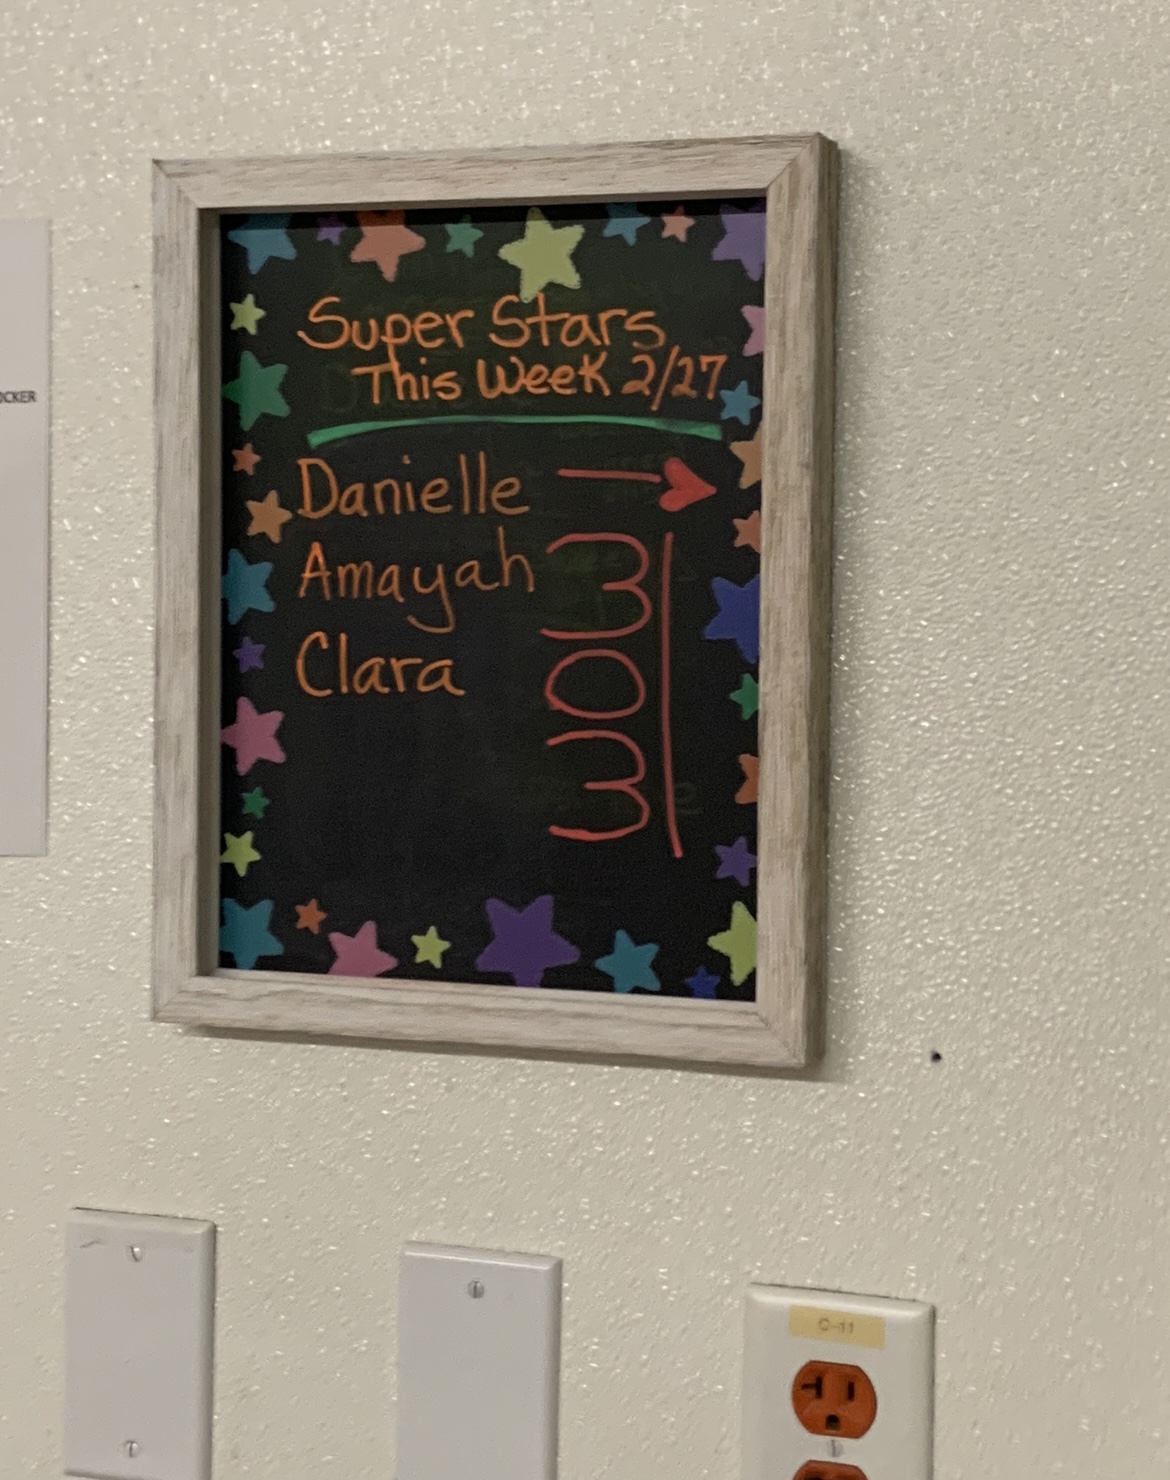 OCKER
Super Stars
This Week 2/27
Danielle
Amayah
Clara
303
C-11